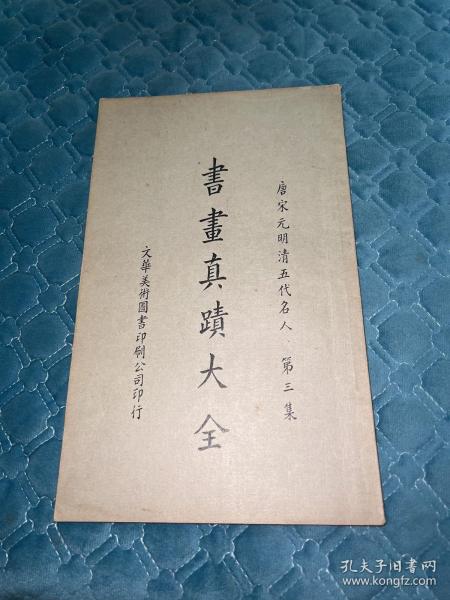 唐宋元明清五代名人 第三集
書畫真蹟大全
文華美術圖書印刷公司印行
孔夫子旧书网
www.kongfz.com